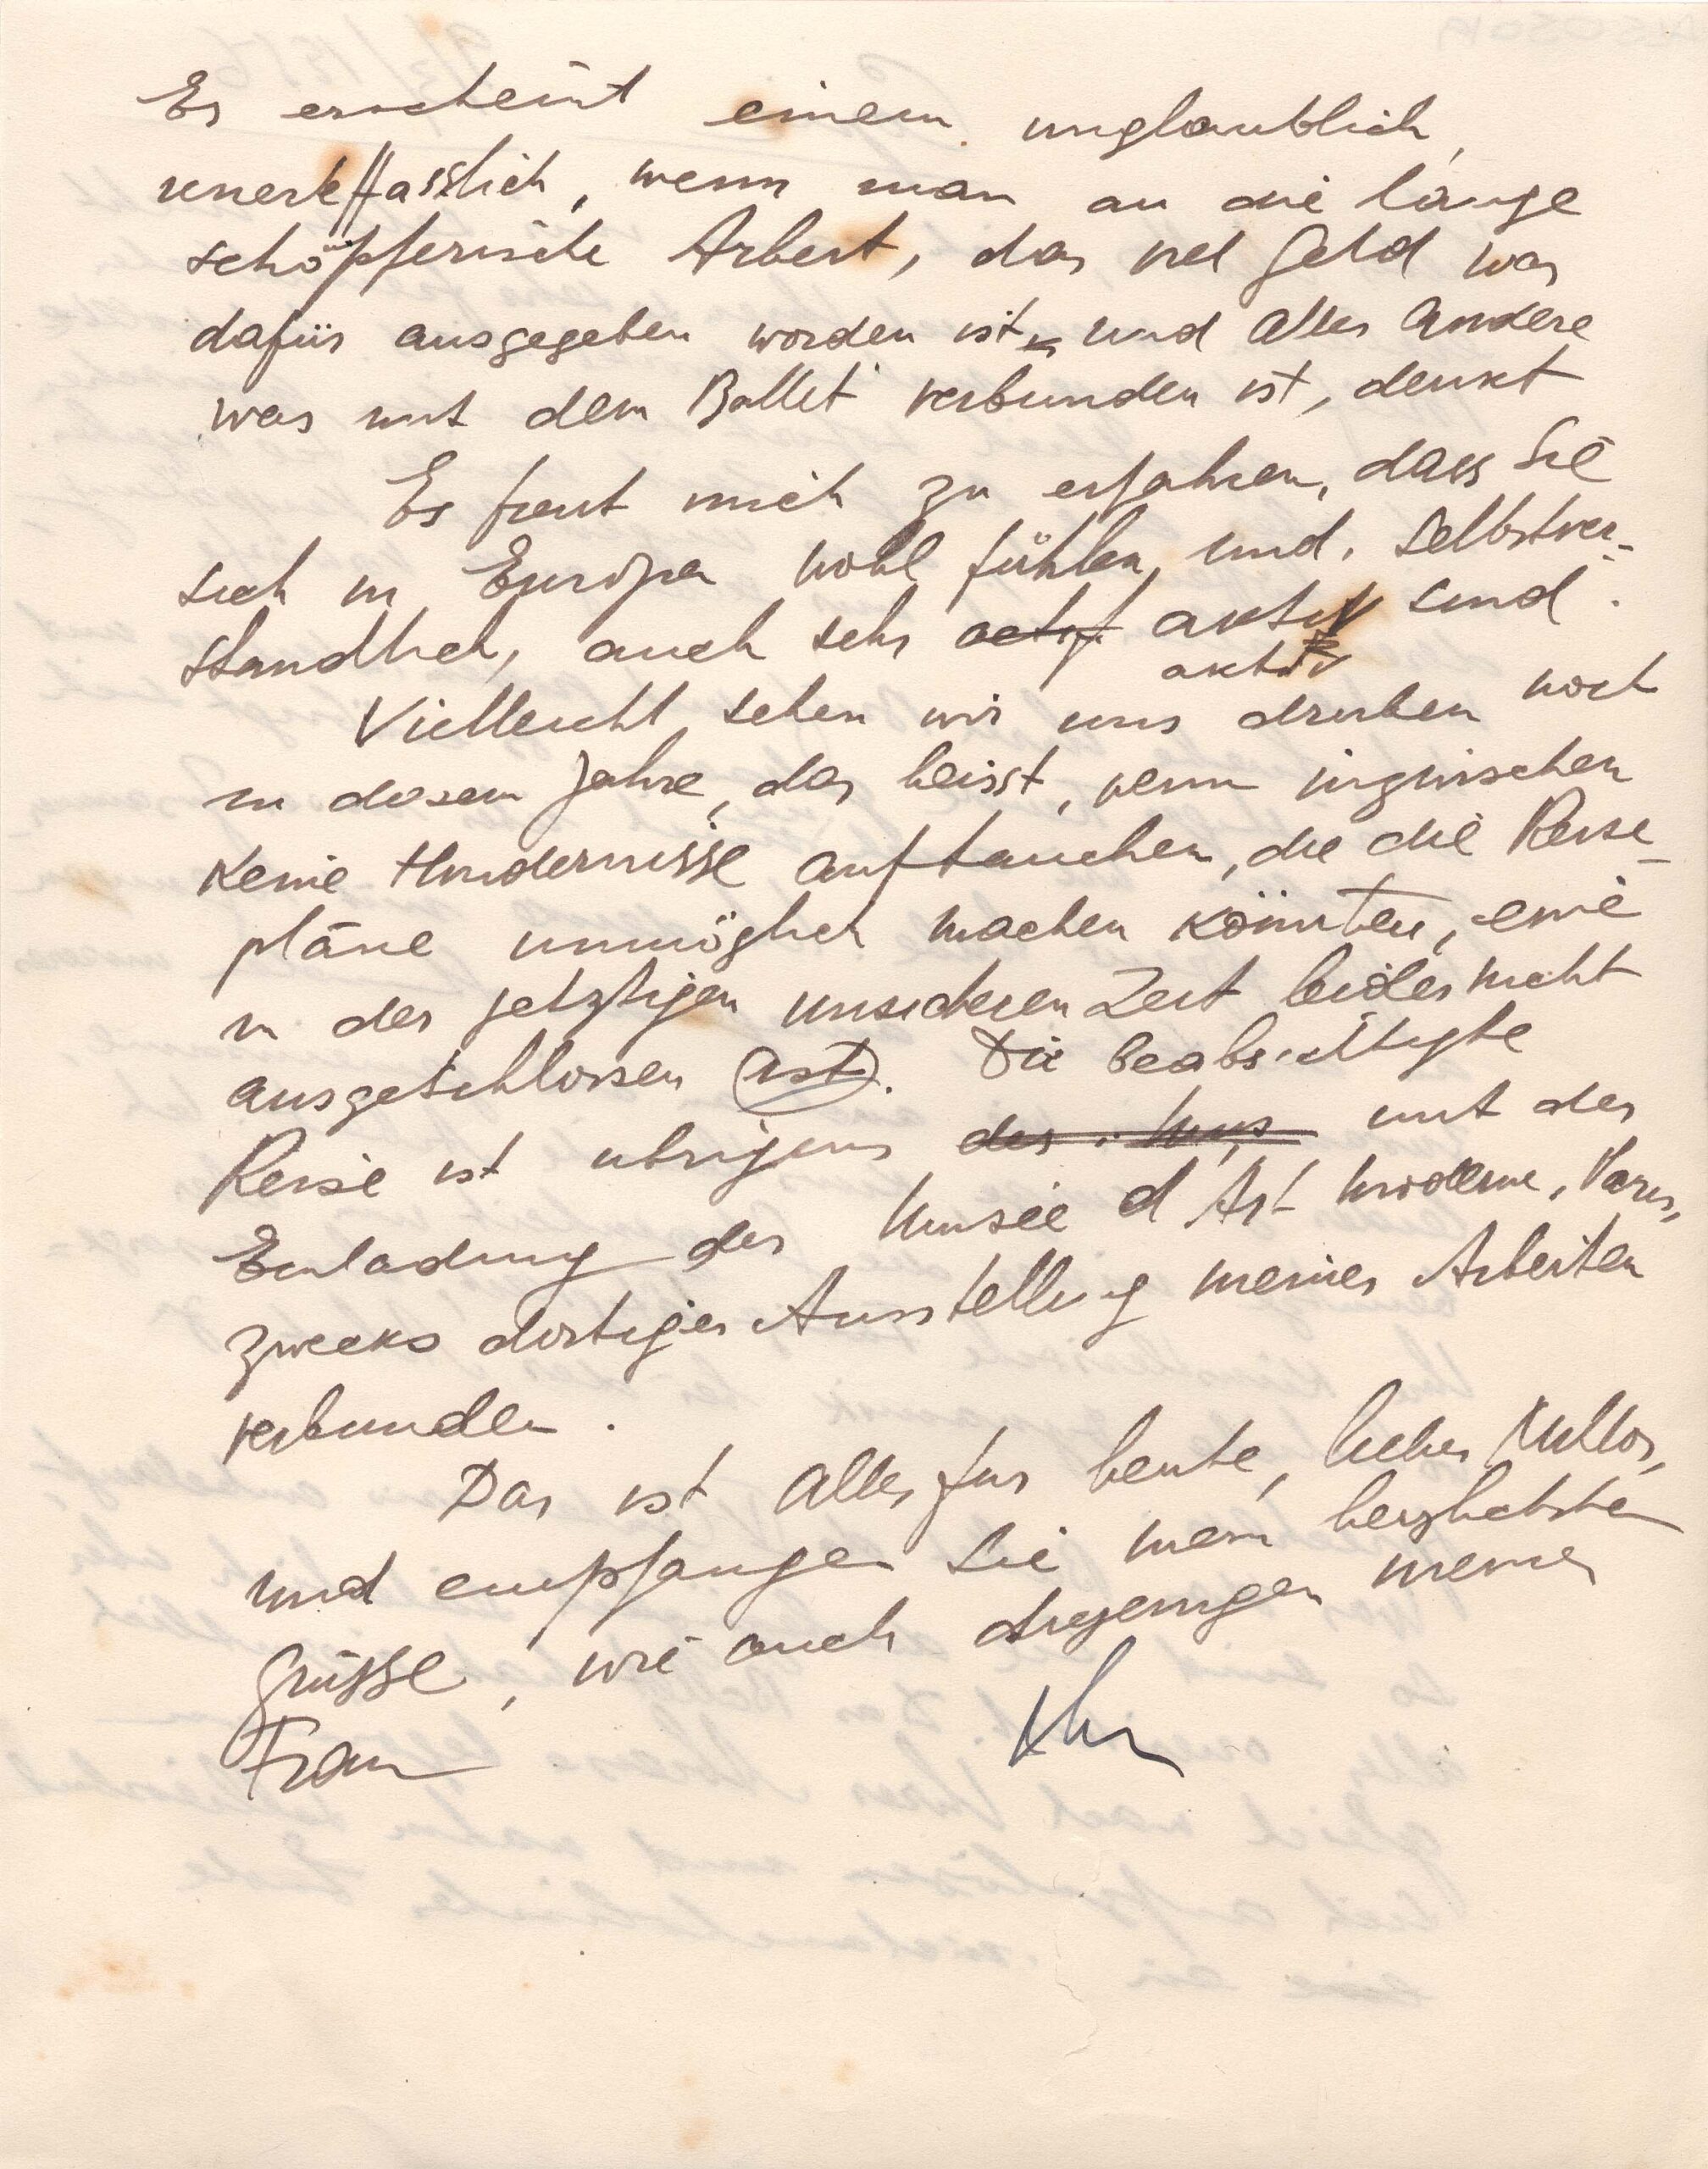 Es erscheint einem unglaublich,
unerkffasslich, wenn man an die lange
schöpferische Arbeit, das viel Geld was
dafür ausgegeben worden ist, und alles Andere
was mit dem Ballet verbunden ist, denkt
Es freut mich zu erfahren, dass Sie
sich in Europa wohl fühlen, und, selbstver-
standlich, auch sehr activ aktiv sind.
aktiv
Vielleicht sehen wir uns druben noch
in diesem Jahre, das heisst, wenn inzwischen
keine Hindernisse auftauchen, die die Reise-
pläne unmöglich machen könnten, eine
in der jetztigen unsicheren Zeit leider nicht
ausgeschlossen (ist). Die beabsichtigte
Reise ist ubrigens der Mus mit der
Einladung des Musée d'Art Moderne, Paris,
zwecks dortiger Ausstellung meiner Arbeiten
verbunden.
Das ist Alles fur heute, lieber Millos,
und empfangen Sie mein herzlichsten
Grüsse, wie auch diejenigen meiner
Frau
Ihr